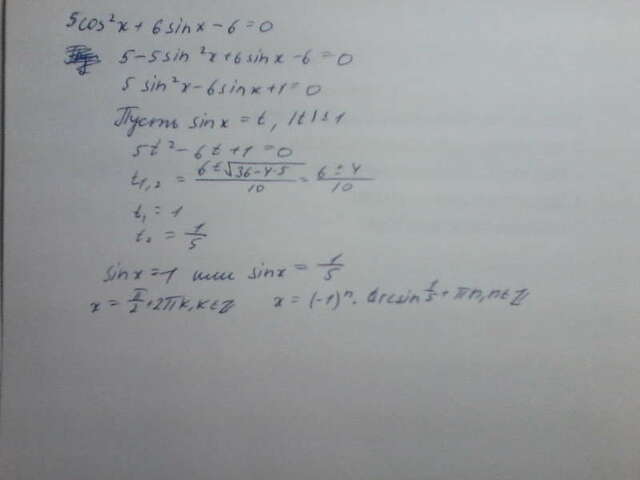 5cos²x + 6sinx - 6 = 0
5 - 5sin²x + 6sinx - 6 = 0
5sin²x - 6sinx + 1 = 0
Пусть sinx = t, |t| ≤ 1
5t² - 6t + 1 = 0
t₁,₂ = (6 ± √(36-4·5))/10 = (6 ± 4)/10
t₁ = 1
t₂ = 1/5
sinx = 1 или sinx = 1/5
x = π/2 + 2πk, k∈Z x = (-1)ⁿ · arcsin 1/5 + πn, n∈Z